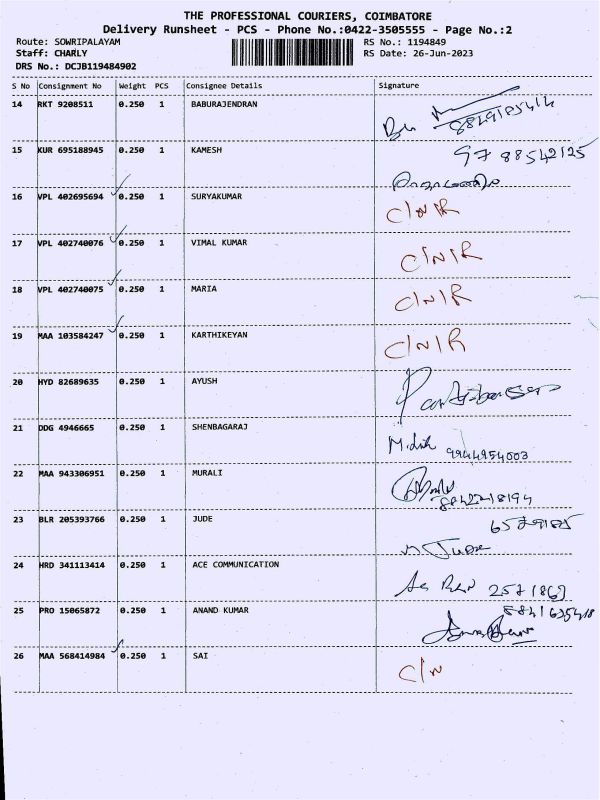 THE PROFESSIONAL COURIERS, COIMBATORE
Delivery Runsheet - PCS - Phone No.:0422-3505555 - Page No.:2
Route: SOWRIPALAYAM RS No.: 1194849
Staff: CHARLY RS Date: 26-Jun-2023
DRS No.: DCJB119484902
S No Consignment No Weight PCS Consignee Details Signature
14 RKT 9208511 0.250 1 BABURAJENDRAN
15 KUR 695188945 0.250 1 KAMESH
97 88542125
16 VPL 402695694 0.250 1 SURYAKUMAR C/N/R
17 VPL 402740076 0.250 1 VIMAL KUMAR C/N/R
18 VPL 402740075 0.250 1 MARIA C/N/R
19 MAA 103584247 0.250 1 KARTHIKEYAN C/N/R
20 HYD 82689635 0.250 1 AYUSH
21 DDG 4946665 0.250 1 SHENBAGARAJ
9944954003
22 MAA 943306951 0.250 1 MURALI
23 BLR 205393766 0.250 1 JUDE
24 HRD 341113414 0.250 1 ACE COMMUNICATION
25 PRO 15065872 0.250 1 ANAND KUMAR
26 MAA 568414984 0.250 1 SAI C/N